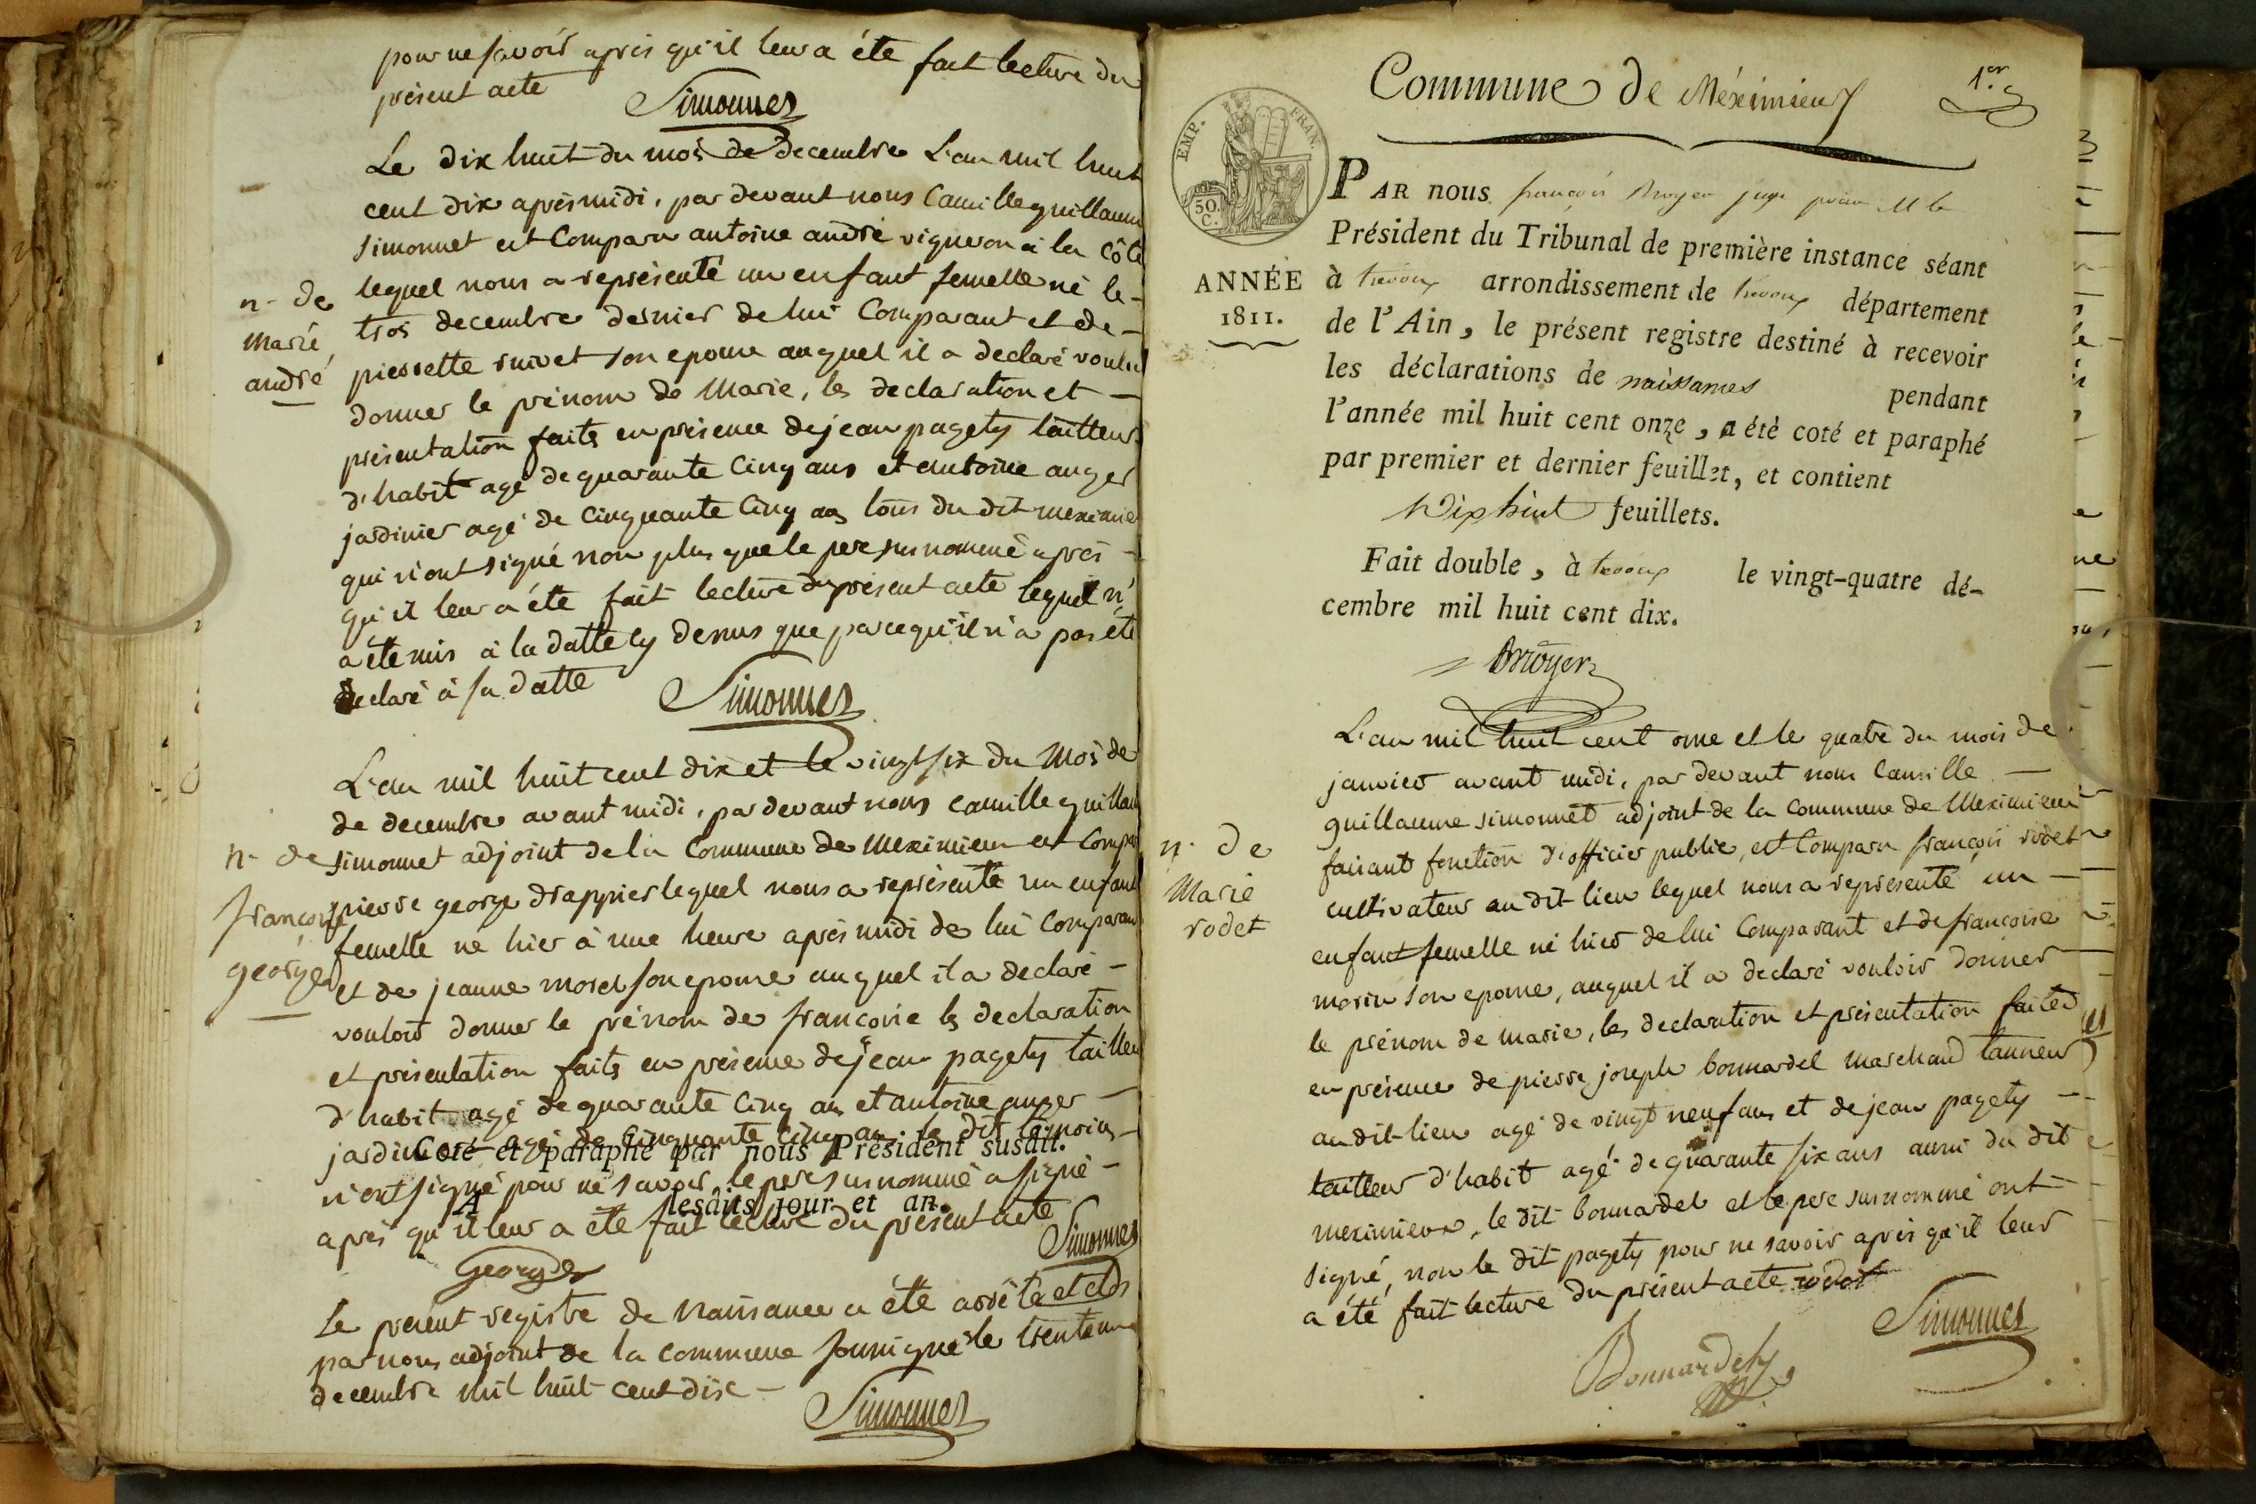 pour ne savoir après qu'il leur a été fait lecture du
présent acte
Simonnet
Le dix huit du mois de decembre L'an mil huit
cent dix après midi, par devant nous Camille guillaume
simonnet est Comparu antoine andré vigneron à la Côte
lequel nous a représenté un enfant femelle né le
trois decembre dernier de lui Comparant et de
pierrette rivet son epouse auquel il a declaré vouloir
donner le prénom de Marie, les declaration et
présentation faits en présence de jean pagety tailleur
d'habit agé de quarante Cinq ans et antoine auger
jardinier agé de Cinquante Cinq ans tous du dit meximieux
qui n'ont signé non plus que le pere susnommé après
qu'il leur a été fait lecture du présent acte lequel n'
a été mis à la datte cy dessus que parcequ'il n'a pas été
declaré à sa datte
Simonnet
n. de
Marie
andré
L'an mil huit cent dix et le vingt six du Mois de
de decembre avant midi, par devant nous camille guillaume
simonnet adjoint de la Commune de Meximieux est Comparu
pierre george drappier lequel nous a représenté un enfant
femelle né hier à une heure après midi de lui Comparant
et de jeanne morel son epouse auquel il a declaré
vouloir donner le prénom de francoise les declaration
et présentation faits en présence de jean pagety tailleur
d'habit agé de quarante Cinq ans et antoine auger
jardinier agé de Cinquante Cinq ans le dit témoins
Coté et paraphé par nous Président susdit.
n'ont signé pour ne savoir, le pere susnommé a signé
A lesdits jour et an.
après qu'il leur a été fait lecture du présent acte
n. de
francoise
george
George
Simonnet
Le présent registre de Naissance a été arrêté et clos
par nous adjoint de la commune soussigné le trente un
decembre mil huit cent dix
Simonnet
Commune de Méximieux
1.er
EMP. FRAN.
50. C.
ANNÉE
1811.
PAR nous françois Moyer juge pour M. le
Président du Tribunal de première instance séant
à trevoux arrondissement de trevoux département
de l'Ain, le présent registre destiné à recevoir
les déclarations de naissances pendant
l'année mil huit cent onze, a été coté et paraphé
par premier et dernier feuillet, et contient
Dix huit feuillets.
Fait double, à trevoux le vingt-quatre dé-
cembre mil huit cent dix.
Moyer
L'an mil huit cent onze et le quatre du mois de
janvier avant midi, par devant nous Camille
guillaume simonnet adjoint de la commune de Meximieux
faisant fonction d'officier public, est Comparu françois rodet
cultivateur au dit lieu lequel nous a représenté un
enfant femelle né hier de lui Comparant et de francoise
morin son epouse, auquel il a declaré vouloir donner
le prénom de marie, les declaration et présentation faites
en présence de pierre joseph bonnardel marchand tanneur
au dit lieu agé de vingt neuf ans et de jean pagety
tailleur d'habit agé de quarante six ans aussi du dit
meximieux, le dit bonnardel et le pere susnommé ont
signé, non le dit pagety pour ne savoir après qu'il leur
a été fait lecture du présent acte rodet
n. de
Marie
rodet
Bonnardel
Simonnet